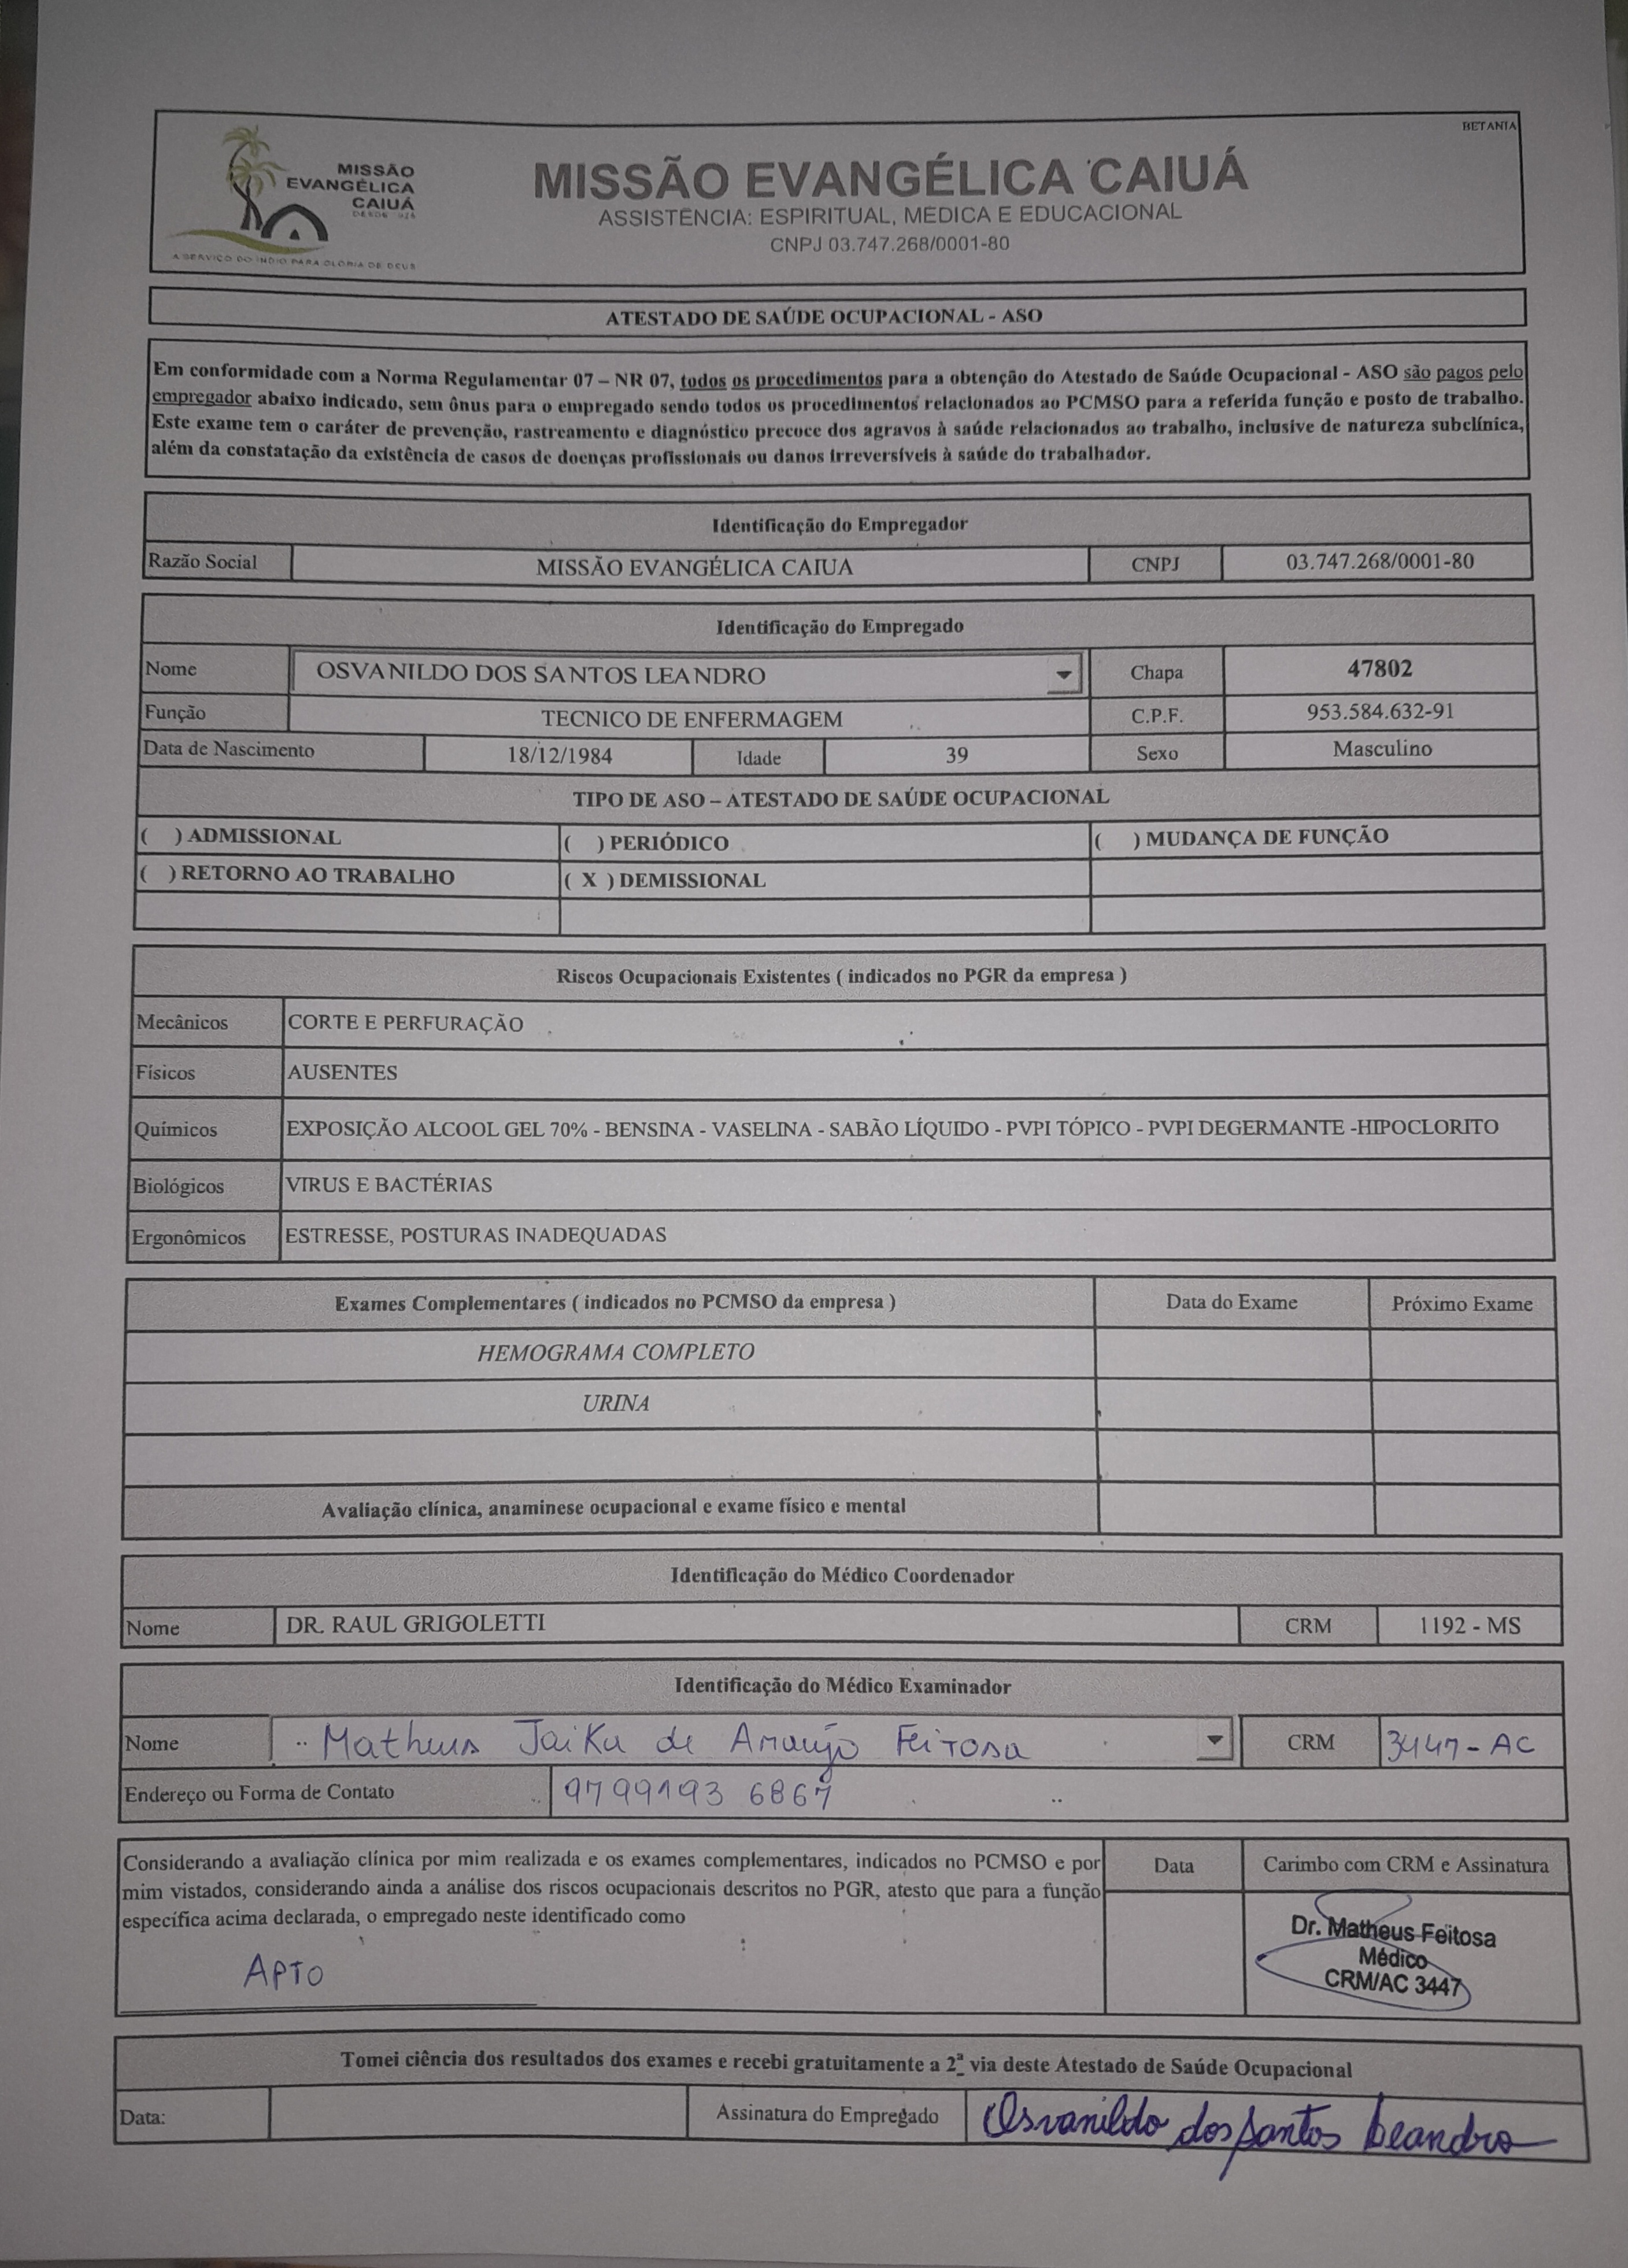 BETANIA
MISSÃO
EVANGÉLICA
CAIUÁ
A SERVIÇO DO ÍNDIO PARA GLÓRIA DE DEUS
MISSÃO EVANGÉLICA CAIUÁ
ASSISTÊNCIA: ESPIRITUAL, MÉDICA E EDUCACIONAL
CNPJ 03.747.268/0001-80
ATESTADO DE SAÚDE OCUPACIONAL - ASO
Em conformidade com a Norma Regulamentar 07 – NR 07, todos os procedimentos para a obtenção do Atestado de Saúde Ocupacional - ASO são pagos pelo
empregador abaixo indicado, sem ônus para o empregado sendo todos os procedimentos relacionados ao PCMSO para a referida função e posto de trabalho.
Este exame tem o caráter de prevenção, rastreamento e diagnóstico precoce dos agravos à saúde relacionados ao trabalho, inclusive de natureza subclínica,
além da constatação da existência de casos de doenças profissionais ou danos irreversíveis à saúde do trabalhador.
Identificação do Empregador
Razão Social MISSÃO EVANGÉLICA CAIUA CNPJ 03.747.268/0001-80
Identificação do Empregado
Nome OSVANILDO DOS SANTOS LEANDRO Chapa 47802
Função TECNICO DE ENFERMAGEM C.P.F. 953.584.632-91
Data de Nascimento 18/12/1984 Idade 39 Sexo Masculino
TIPO DE ASO – ATESTADO DE SAÚDE OCUPACIONAL
( ) ADMISSIONAL ( ) PERIÓDICO ( ) MUDANÇA DE FUNÇÃO
( ) RETORNO AO TRABALHO ( X ) DEMISSIONAL
Riscos Ocupacionais Existentes ( indicados no PGR da empresa )
Mecânicos CORTE E PERFURAÇÃO
Físicos AUSENTES
Químicos EXPOSIÇÃO ALCOOL GEL 70% - BENSINA - VASELINA - SABÃO LÍQUIDO - PVPI TÓPICO - PVPI DEGERMANTE -HIPOCLORITO
Biológicos VIRUS E BACTÉRIAS
Ergonômicos ESTRESSE, POSTURAS INADEQUADAS
Exames Complementares ( indicados no PCMSO da empresa ) Data do Exame Próximo Exame
HEMOGRAMA COMPLETO
URINA
Avaliação clínica, anaminese ocupacional e exame físico e mental
Identificação do Médico Coordenador
Nome DR. RAUL GRIGOLETTI CRM 1192 - MS
Identificação do Médico Examinador
Nome Matheus Jaika de Araujo Feitosa CRM 3447-AC
Endereço ou Forma de Contato 9799193 6867
Considerando a avaliação clínica por mim realizada e os exames complementares, indicados no PCMSO e por
mim vistados, considerando ainda a análise dos riscos ocupacionais descritos no PGR, atesto que para a função
específica acima declarada, o empregado neste identificado como
APTO
Data
Carimbo com CRM e Assinatura
Dr. Matheus Feitosa
Médico
CRM/AC 3447
Tomei ciência dos resultados dos exames e recebi gratuitamente a 2ª via deste Atestado de Saúde Ocupacional
Data: Assinatura do Empregado Osvanildo dos Santos Leandro